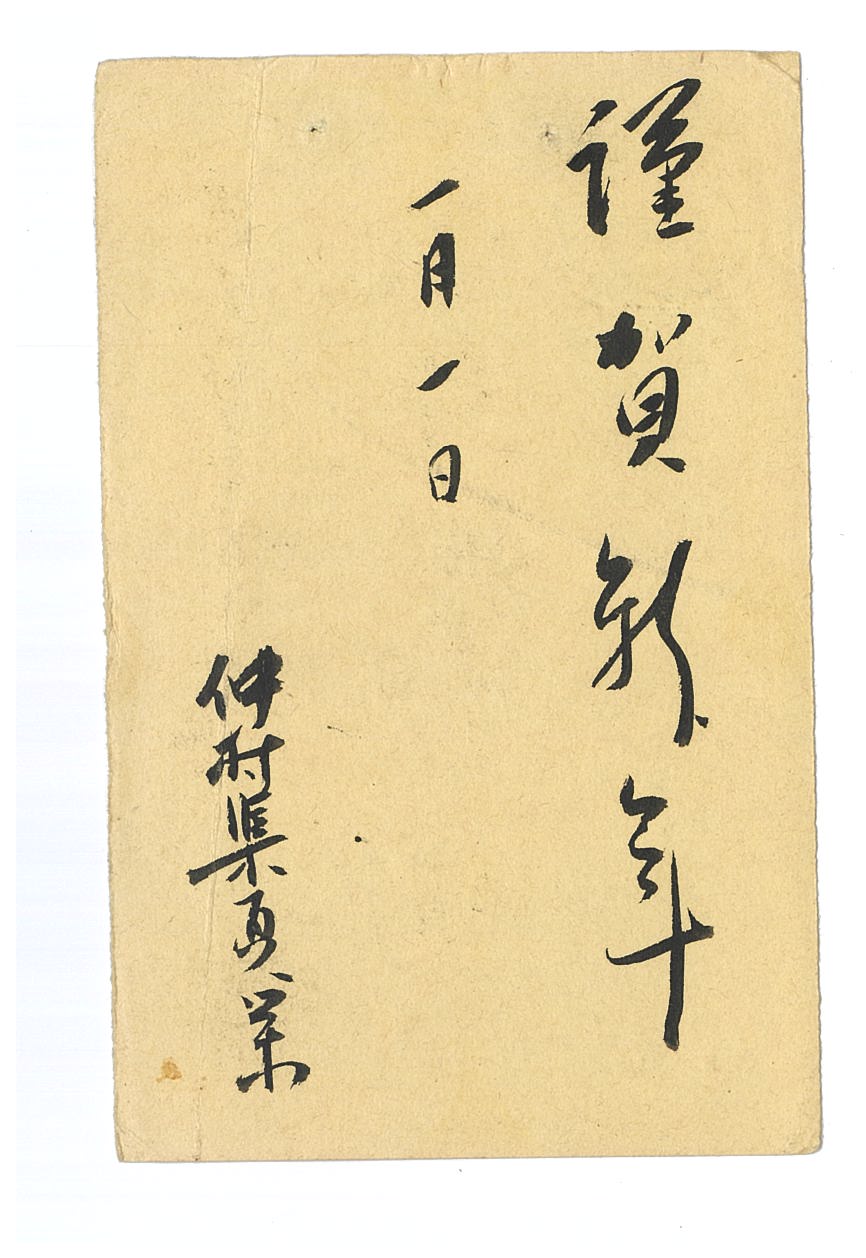 謹賀新年
一月一日
仲村渠真業